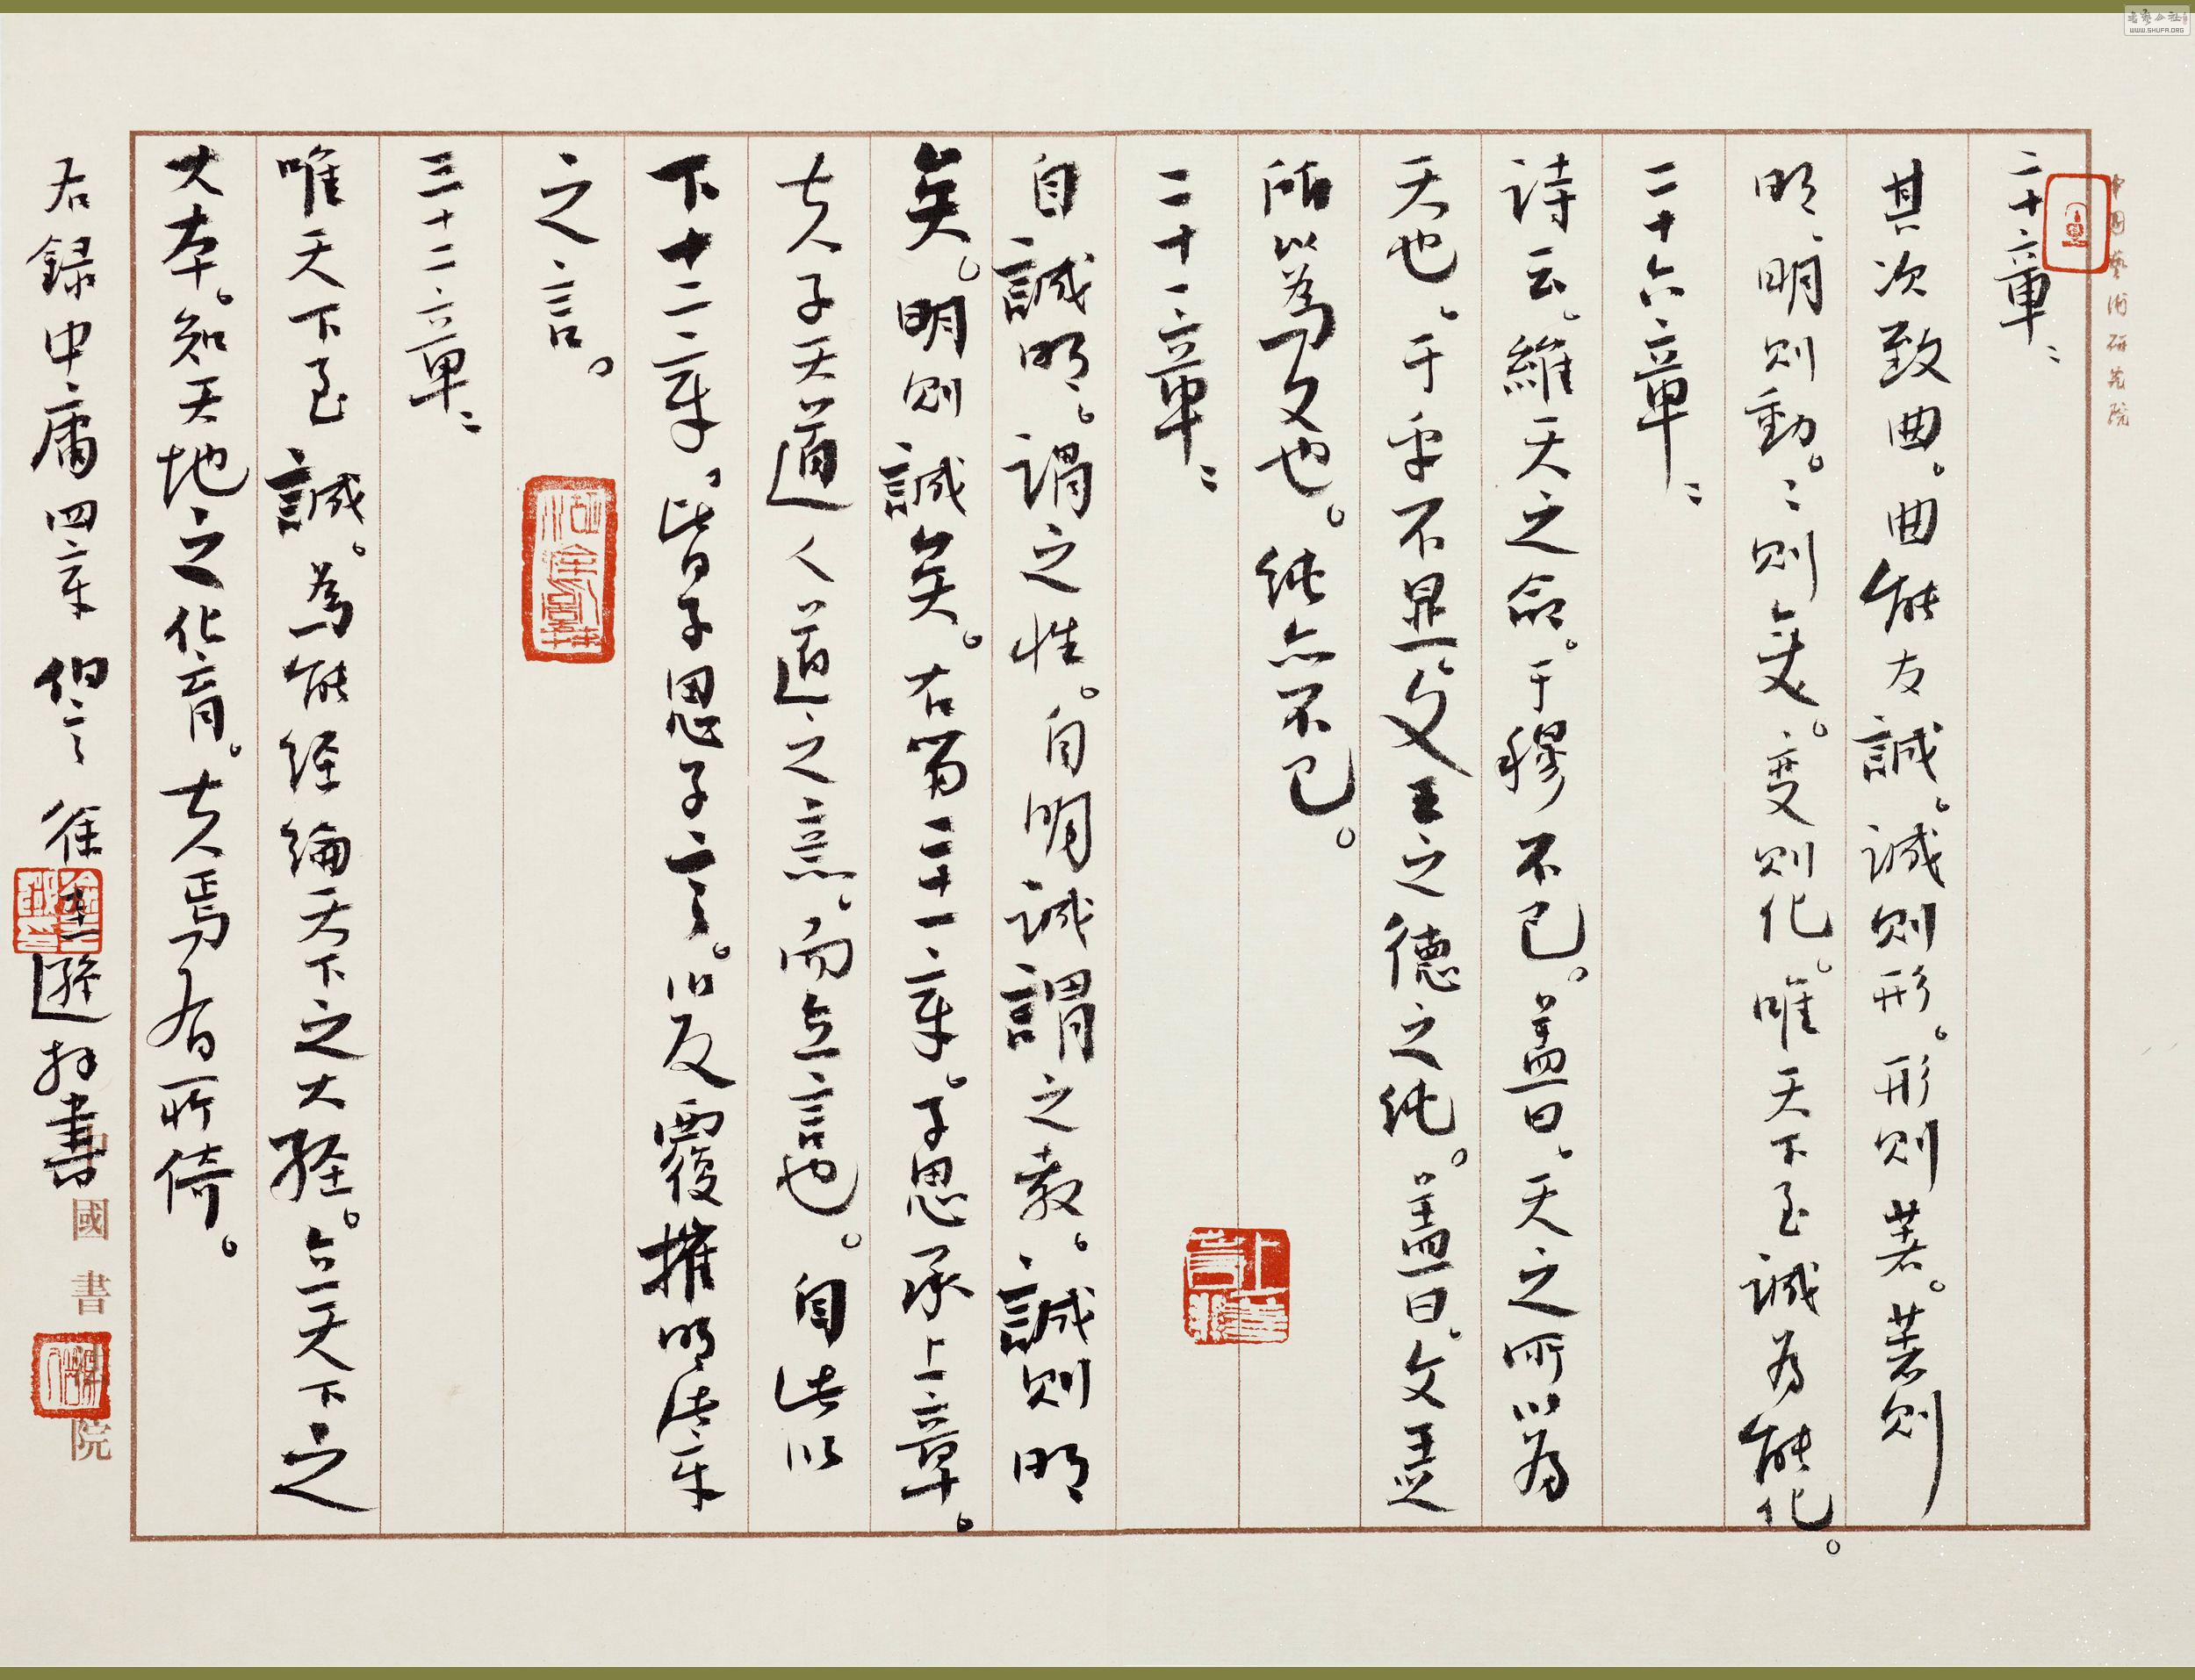 二十章:
其次致曲。曲能友誠。誠則形。形則著。著則
明、明則動。:則変。变則化。唯天下至誠為能化。
二十六章:
诗云。維天之命。于穆不已。盖曰、天之所以為
天也。于乎不显。文王之德之纯。盖曰。文王之
所以為文也。纯亦不已。
二十一章:
自誠明。謂之性。自明誠謂之教。誠則明
矣。明則誠矣。右第二十一章。子思承上章。
夫子天道人道之意。而立言也。自此以
下十二章。皆子思子言。以反覆推明此章
之言。
三十二章:
唯天下至誠。為能经綸天下之大经。立天下之
大本。知天地之化育。夫焉有所倚。
右録中庸四章 伯言 徐 遜 书書
中國藝術研究院
國書 院
書藝公社
WWW.SHUFA.ORG